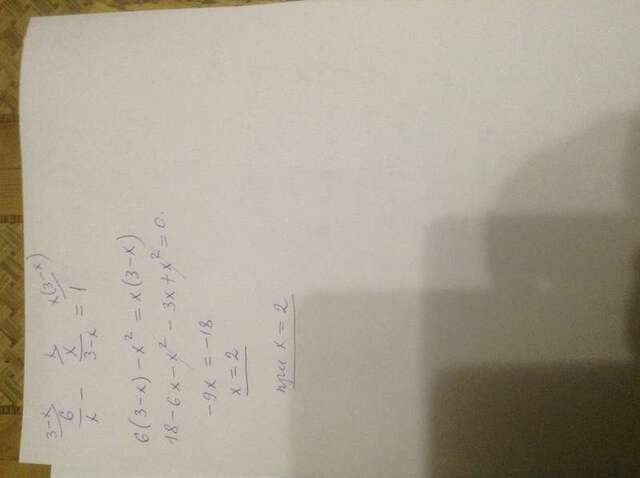 6/x - x/(3-x) = 1
3-x x x(3-x)
6(3-x)-x² = x(3-x)
18-6x-x²-3x+x²=0.
-9x=-18
x=2
при x=2